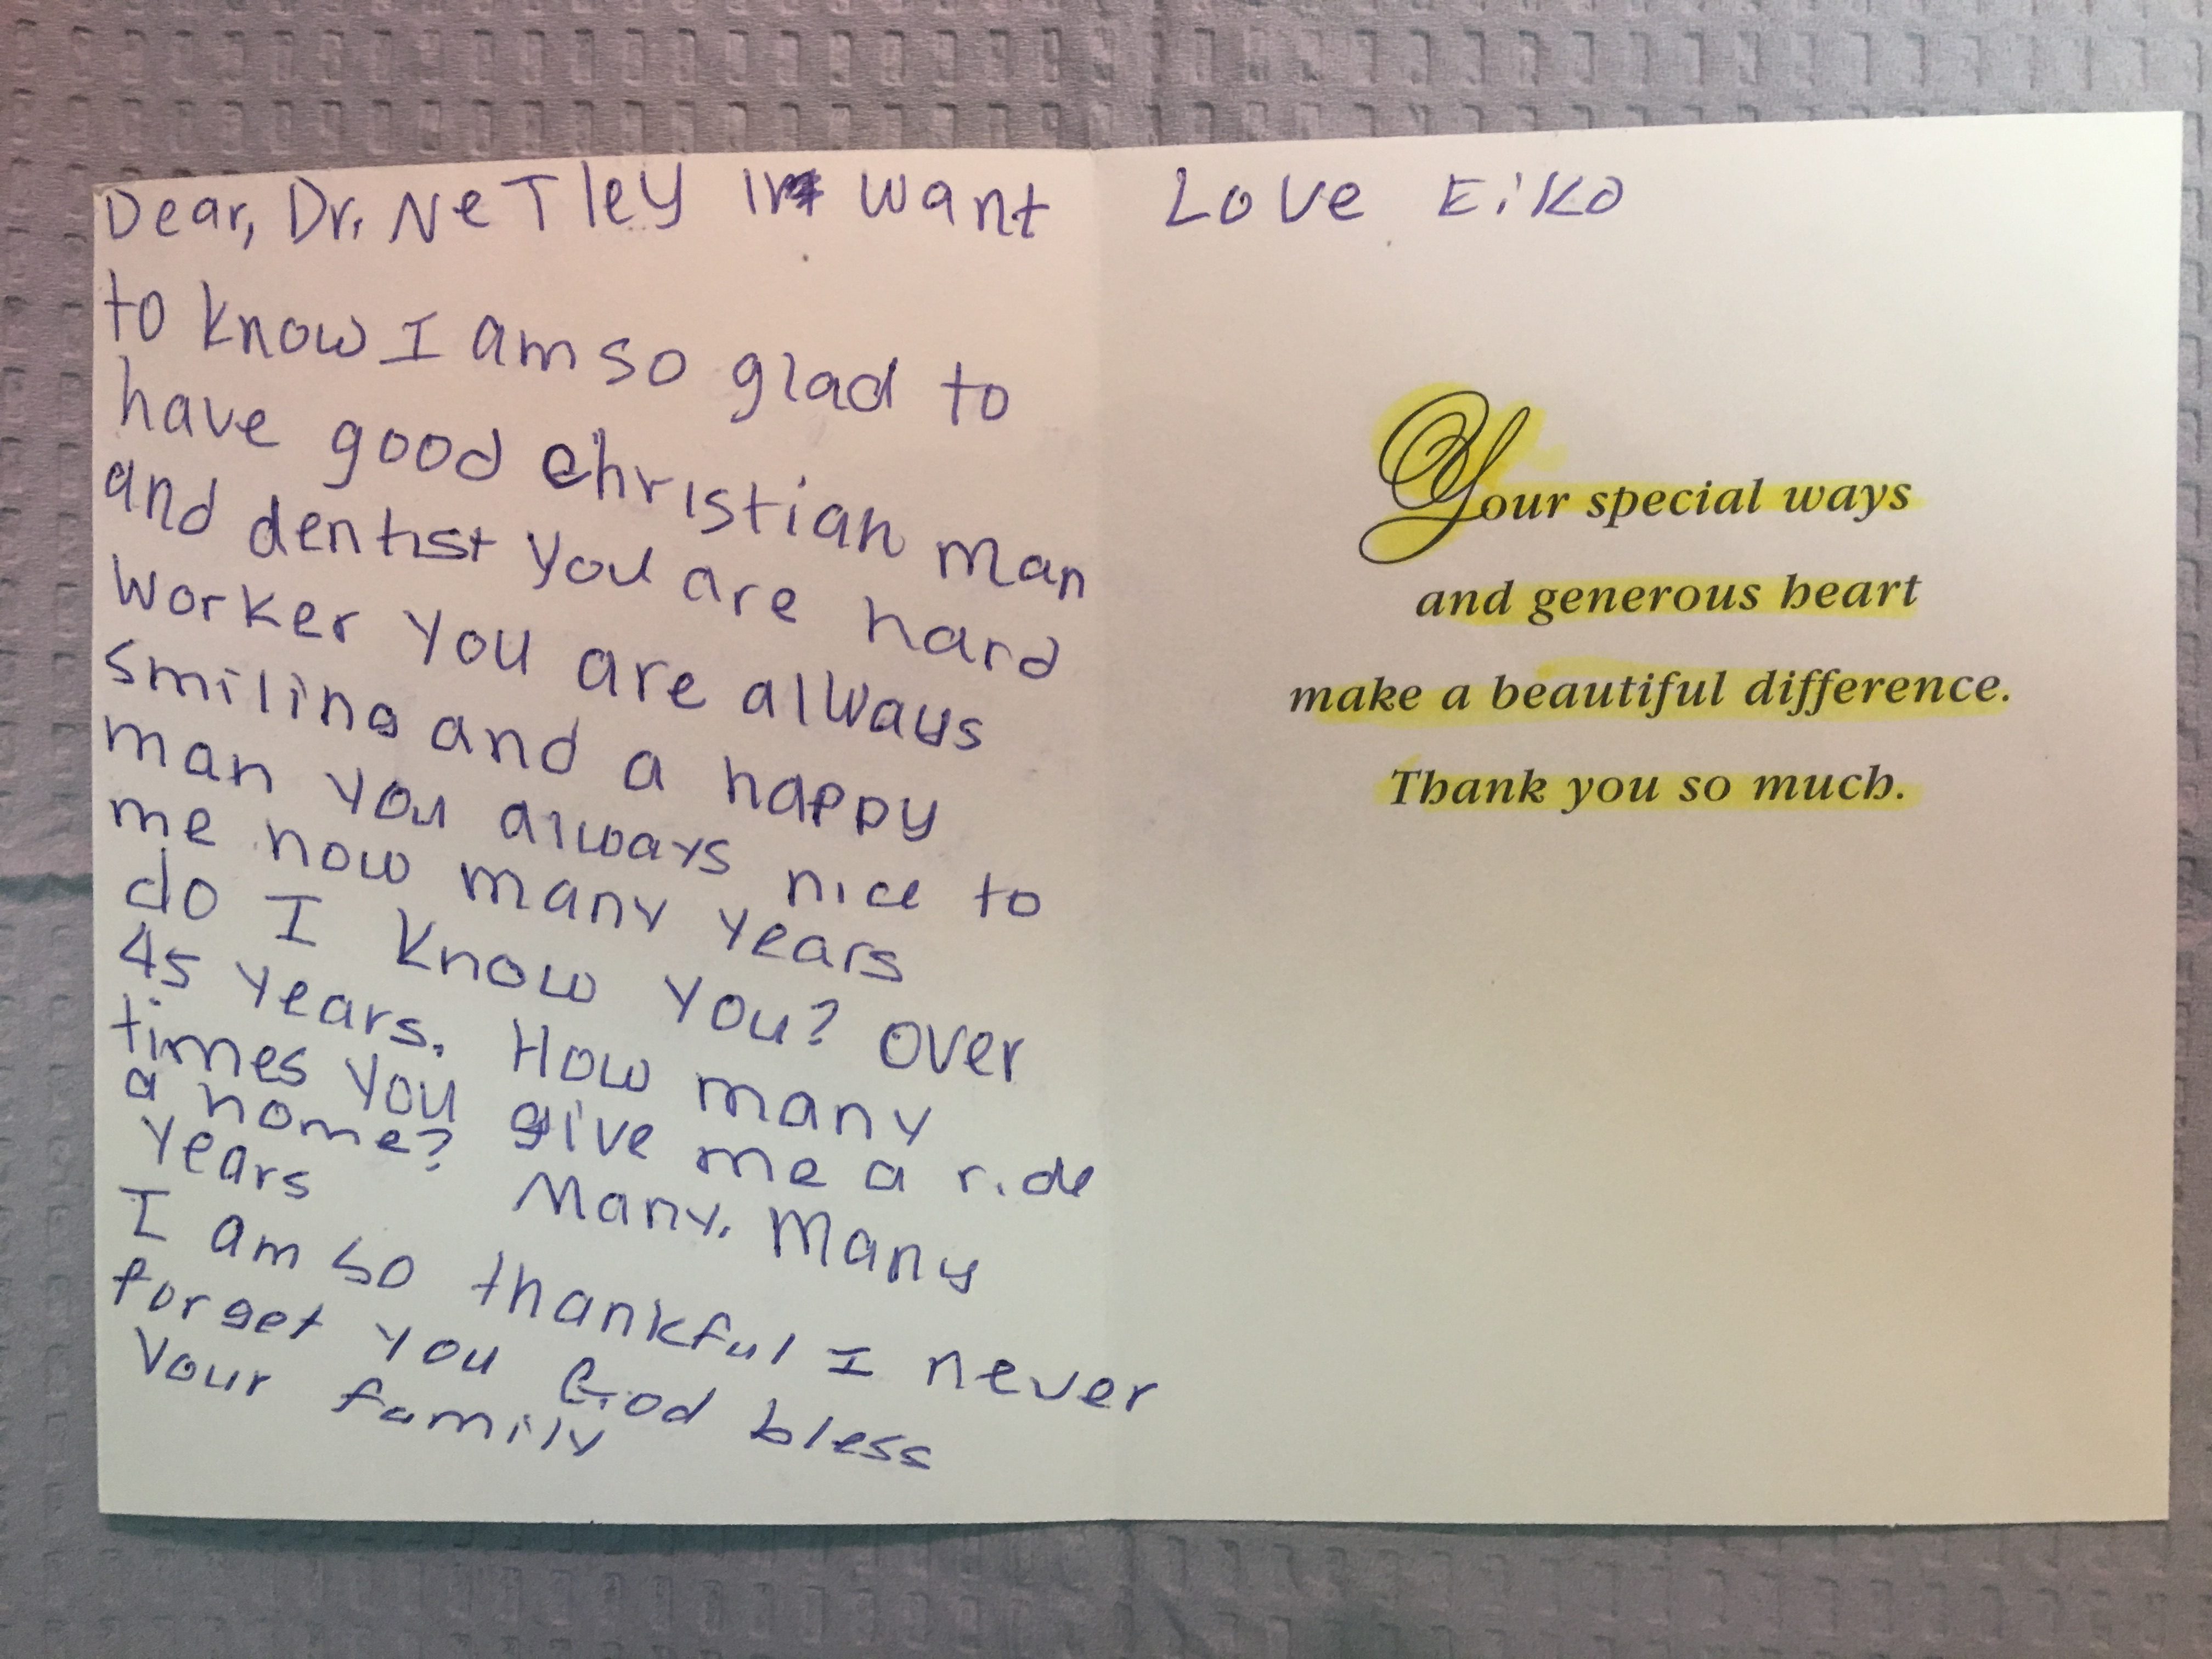 Dear, Dr. NeTley I want
to know I am so glad to
have good christian man
and dentist you are hard
worker you are always
smiling and a happy
man you always nice to
me how many years
do I know you? over
45 years. How many
times you give me a ride
a home? Many. Many
years
I am so thankful I never
forget you God bless
Your family
Love Eiko
Your special ways
and generous heart
make a beautiful difference.
Thank you so much.